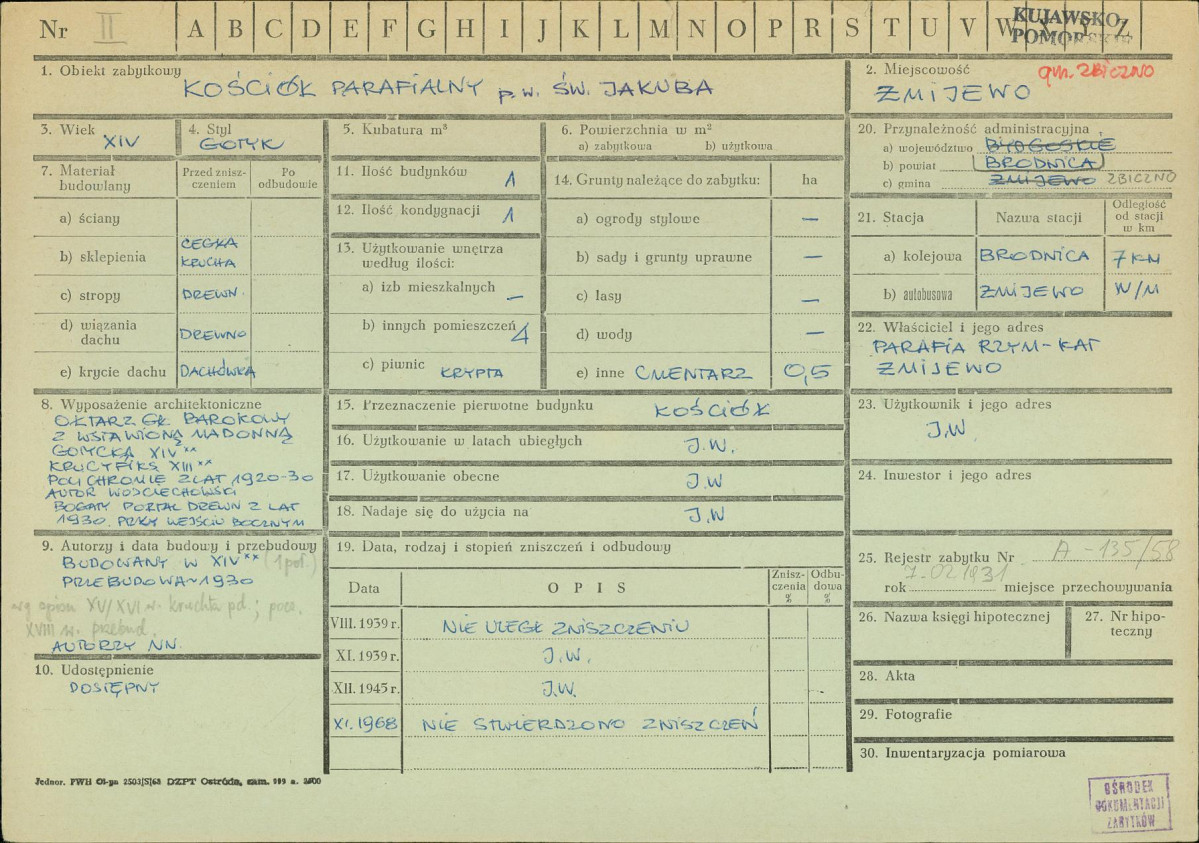 Nr II A B C D E F G H I J K L M N O P R S T U V W X Y Z
KUJAWSKO
POMORSKIE
1. Obiekt zabytkowy
KOŚCIÓŁ PARAFIALNY p.w. ŚW. JAKUBA
2. Miejscowość
gm. ZBICZNO
ŻMIJEWO
3. Wiek
XIV
4. Styl
GOTYK
5. Kubatura m³
6. Powierzchnia w m²
a) zabytkowa b) użytkowa
7. Materiał budowlany
Przed znisz-czeniem
Po odbudowie
a) ściany
b) sklepienia
CEGŁA
KRUCHA
c) stropy DREWN.
d) wiązania dachu DREWNO
e) krycie dachu DACHÓWKA
11. Ilość budynków 1
12. Ilość kondygnacji 1
13. Użytkowanie wnętrza
według ilości:
a) izb mieszkalnych –
b) innych pomieszczeń 4
c) piwnic KRYPTA
14. Grunty należące do zabytku: ha
a) ogrody stylowe –
b) sady i grunty uprawne –
c) lasy –
d) wody –
e) inne CMENTARZ 0,5
20. Przynależność administracyjna
a) województwo BYDGOSKIE
b) powiat BRODNICA
c) gmina ŻMIJEWO ZBICZNO
21. Stacja Nazwa stacji Odległość od stacji w km
a) kolejowa BRODNICA 7 KM
b) autobusowa ŻMIJEWO W/M
22. Właściciel i jego adres
PARAFIA RZYM-KAT
ŻMIJEWO
8. Wyposażenie architektoniczne
OŁTARZ GŁ. BAROKOWY
Z WSTAWIONĄ MADONNĄ
GOTYCKĄ XIV
KRUCYFIKS XIII
POLICHROMIE Z LAT 1920-30
AUTOR WOJCIECHOWSKI
BOGATY PORTAL DREWN Z LAT
1930. PRZY WEJŚCIU BOCZNYM
15. Przeznaczenie pierwotne budynku KOŚCIÓŁ
16. Użytkowanie w latach ubiegłych J.W.
17. Użytkowanie obecne J.W
18. Nadaje się do użycia na J.W
23. Użytkownik i jego adres
J.W.
24. Inwestor i jego adres
9. Autorzy i data budowy i przebudowy
BUDOWANY W XIV (1 poł.)
PRZEBUDOWA ~ 1930
wg opisu XV/XVI w. kruchta pd.; pocz.
XVIII w. przebud.
AUTORZY NN.
10. Udostępnienie
DOSTĘPNY
19. Data, rodzaj i stopień zniszczeń i odbudowy
Data OPIS Znisz-czenia % Odbu-dowa %
VIII. 1939 r. NIE ULEGŁ ZNISZCZENIU
XI. 1939 r. J.W.
XII. 1945 r. J.W.
XI. 1968 NIE STWIERDZONO ZNISZCZEŃ
25. Rejestr zabytku Nr A-135/58
rok 7.02.1931 miejsce przechowywania
26. Nazwa księgi hipotecznej
27. Nr hipo-teczny
28. Akta
29. Fotografie
30. Inwentaryzacja pomiarowa
Jednor. PWH Ol-yn 2503/S/68 DZPT Ostróda, zam.
OŚRODEK
DOKUMENTACJI
ZABYTKÓW